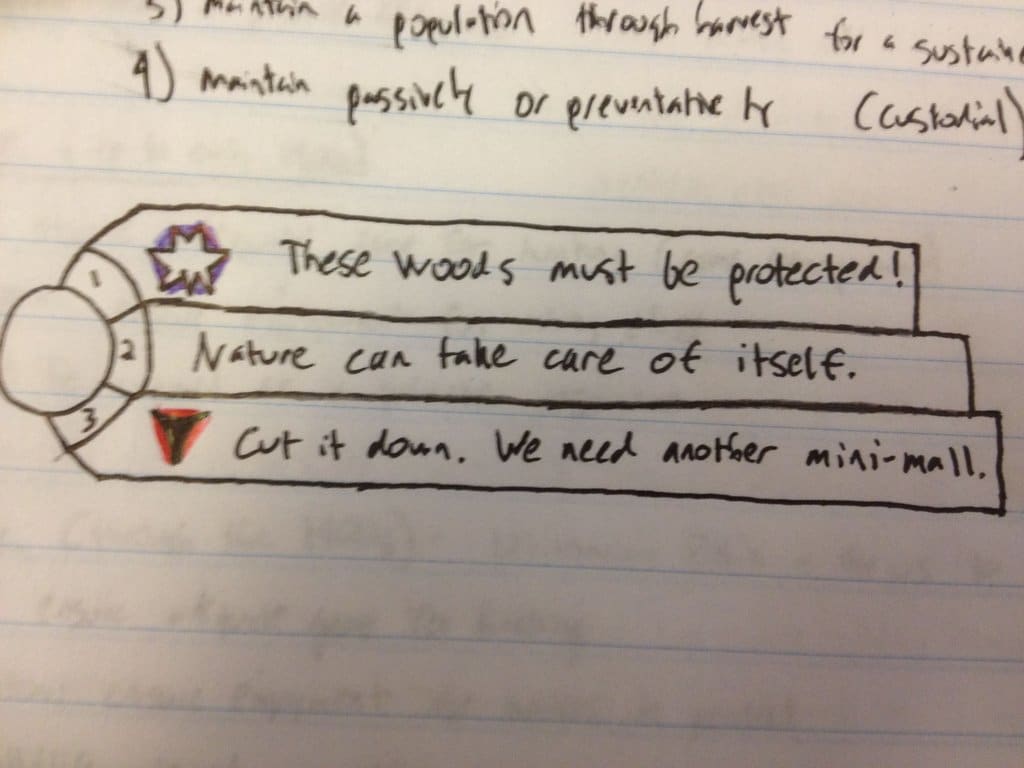 3) maintain a population through harvest for a
4) maintain passively or preventatively (custodial)
1 These woods must be protected!
2 Nature can take care of itself.
3 Cut it down. We need another mini-mall.